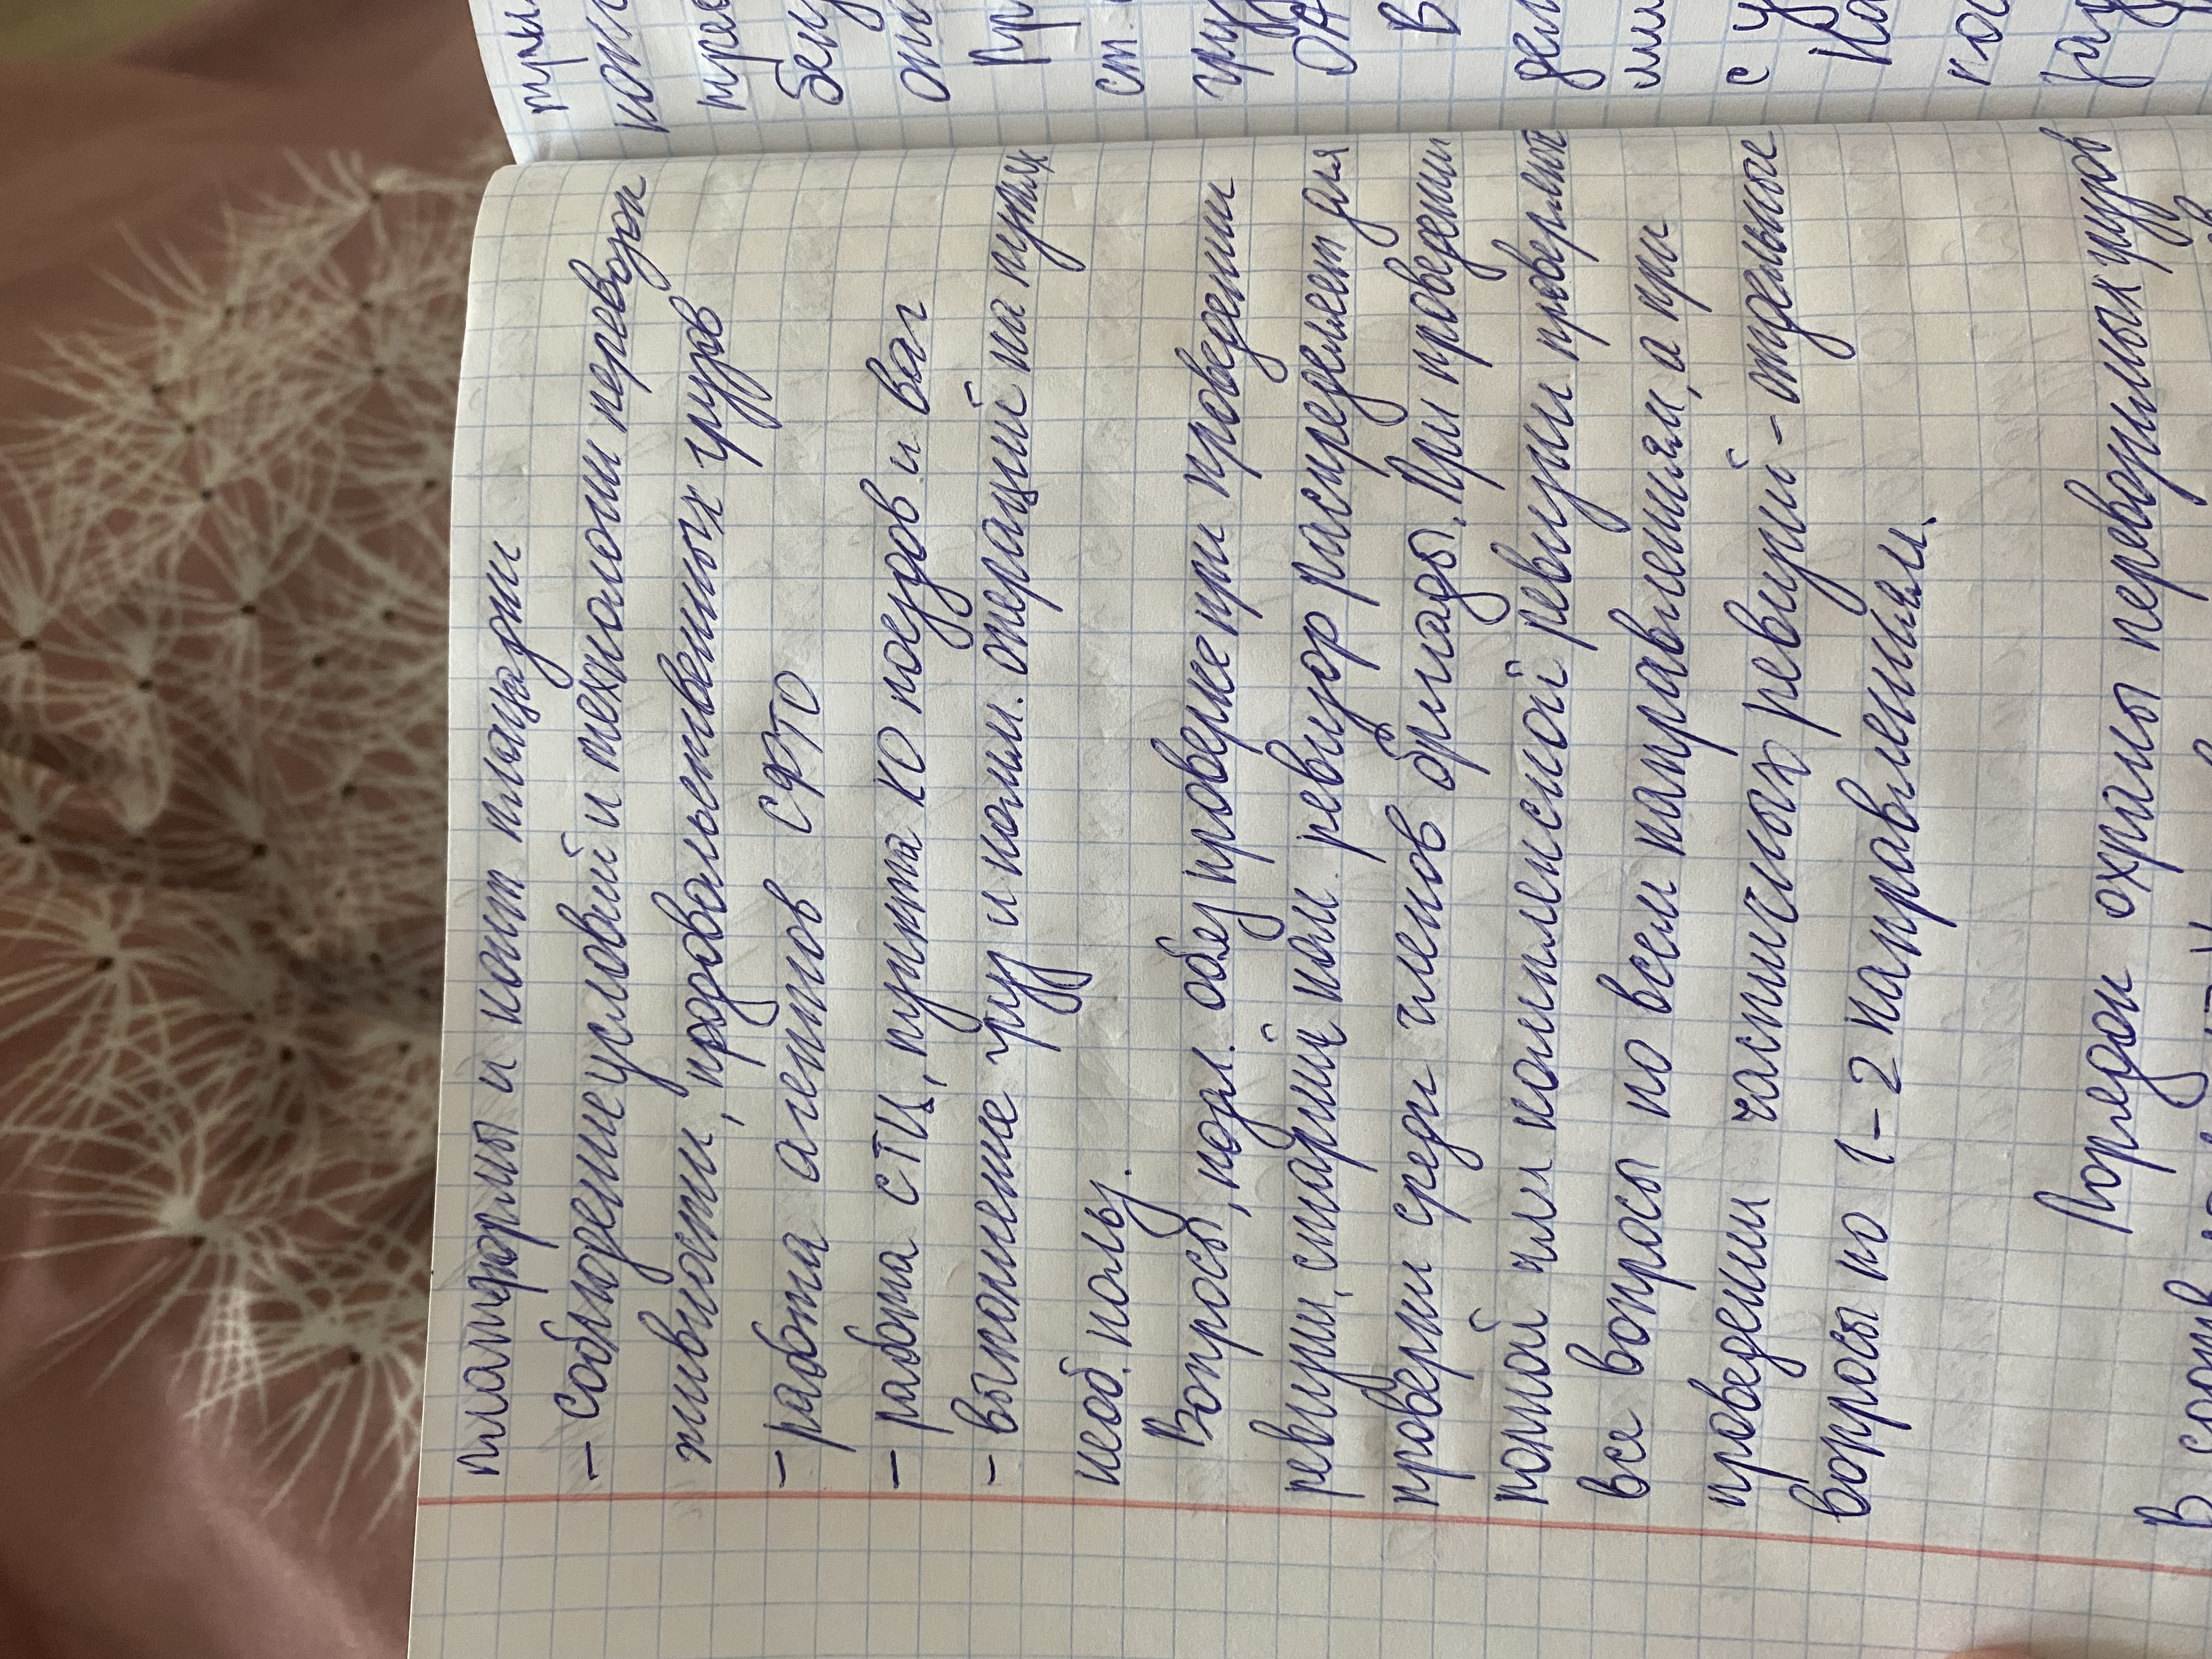 платформы и конт площадки
- соблюдение условий и технологии перевозок
живности, продовольственных грузов
- работа агентов СФТО
- работа СТЦ, пункта КО поездов и ваг
- выполнение груз и комм. операций на путях
необ. польз.
Вопросы, подл. обяз проверке при проведении
ревизии, старший ком. ревизор распределяет для
проверки среди членов бригады. При проведении
полной или комплексной ревизии проверяют
все вопросы по всем направлениям, а при
проведении частичных ревизий - отдельные
вопросы по 1-2 направлениям.
Порядок охраны перевозимых грузов
В соотв
треб
опи
ст.
груз
ОА
В
дел
с у